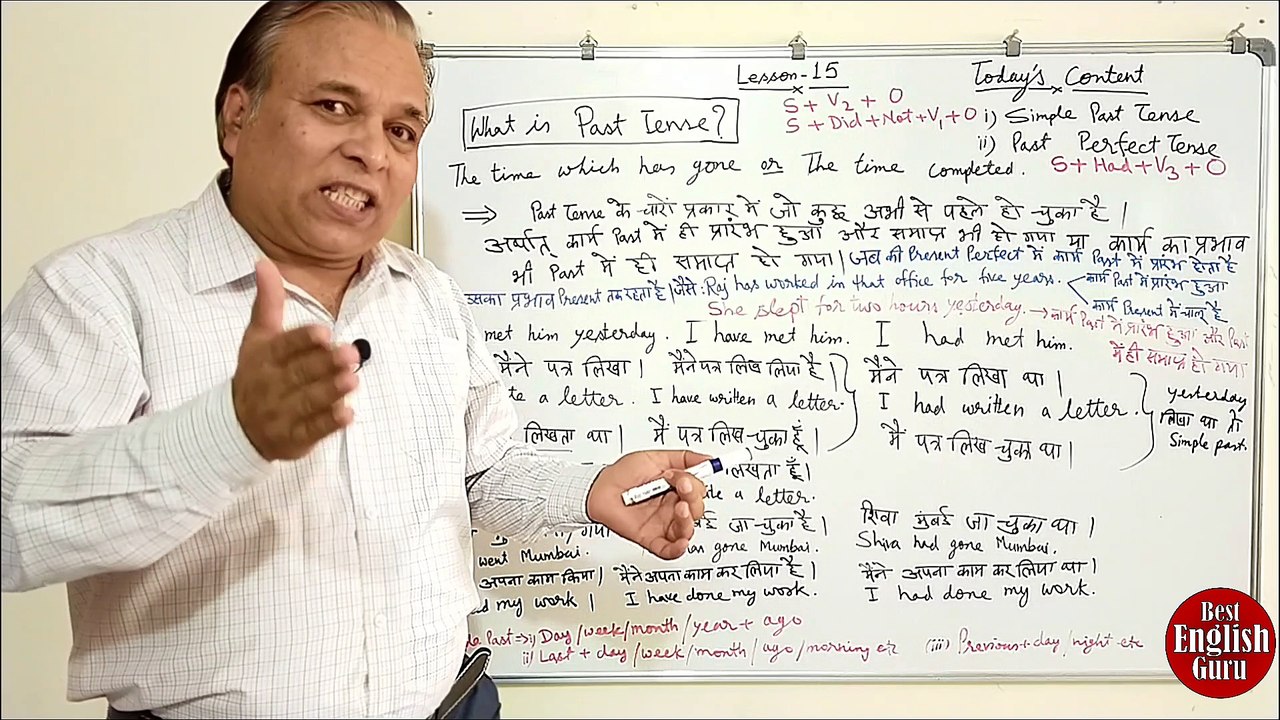 Lesson-15
Today's Content
What is Past Tense?
S + V2 + O
S + Did + Not + V1 + O
i) Simple Past Tense
ii) Past Perfect Tense
S + Had + V3 + O
The time which has gone or The time completed.
⇒ Past Tense के चारों प्रकार में जो कुछ अभी से पहले हो चुका है।
अर्थात् कार्य Past में ही प्रारंभ हुआ और समाप्त भी हो गया या कार्य का प्रभाव
भी Past में ही समाप्त हो गया। जब की Present Perfect में कार्य Past में प्रारंभ होता है
उसका प्रभाव Present तक रहता है। जैसे: Raj has worked in that office for five years.
कार्य Past में प्रारंभ हुआ
कार्य Present में चालू है
She slept for two hours yesterday. → कार्य Past में प्रारंभ हुआ और Past
में ही समाप्त हो गया
met him yesterday. I have met him. I had met him.
मैंने पत्र लिखा। मैंने पत्र लिख लिया है। मैंने पत्र लिखा था।
te a letter. I have written a letter. I had written a letter.
लिखता था। मैं पत्र लिख चुका हूँ। मैं पत्र लिख चुका था।
yesterday
लिखा था तो
Simple past.
लिखता हूँ।
a letter.
गया जा चुका है। शिवा मुंबई जा चुका था।
went Mumbai. has gone Mumbai. Shiva had gone Mumbai.
अपना काम किया। मैंने अपना काम कर लिया है। मैंने अपना काम कर लिया था।
my work | I have done my work. I had done my work.
Past ⇒ i) Day/week/month/year + ago
ii) Last + day/week/month/ago/morning etc (iii) Previous + day/night etc
Best
English
Guru